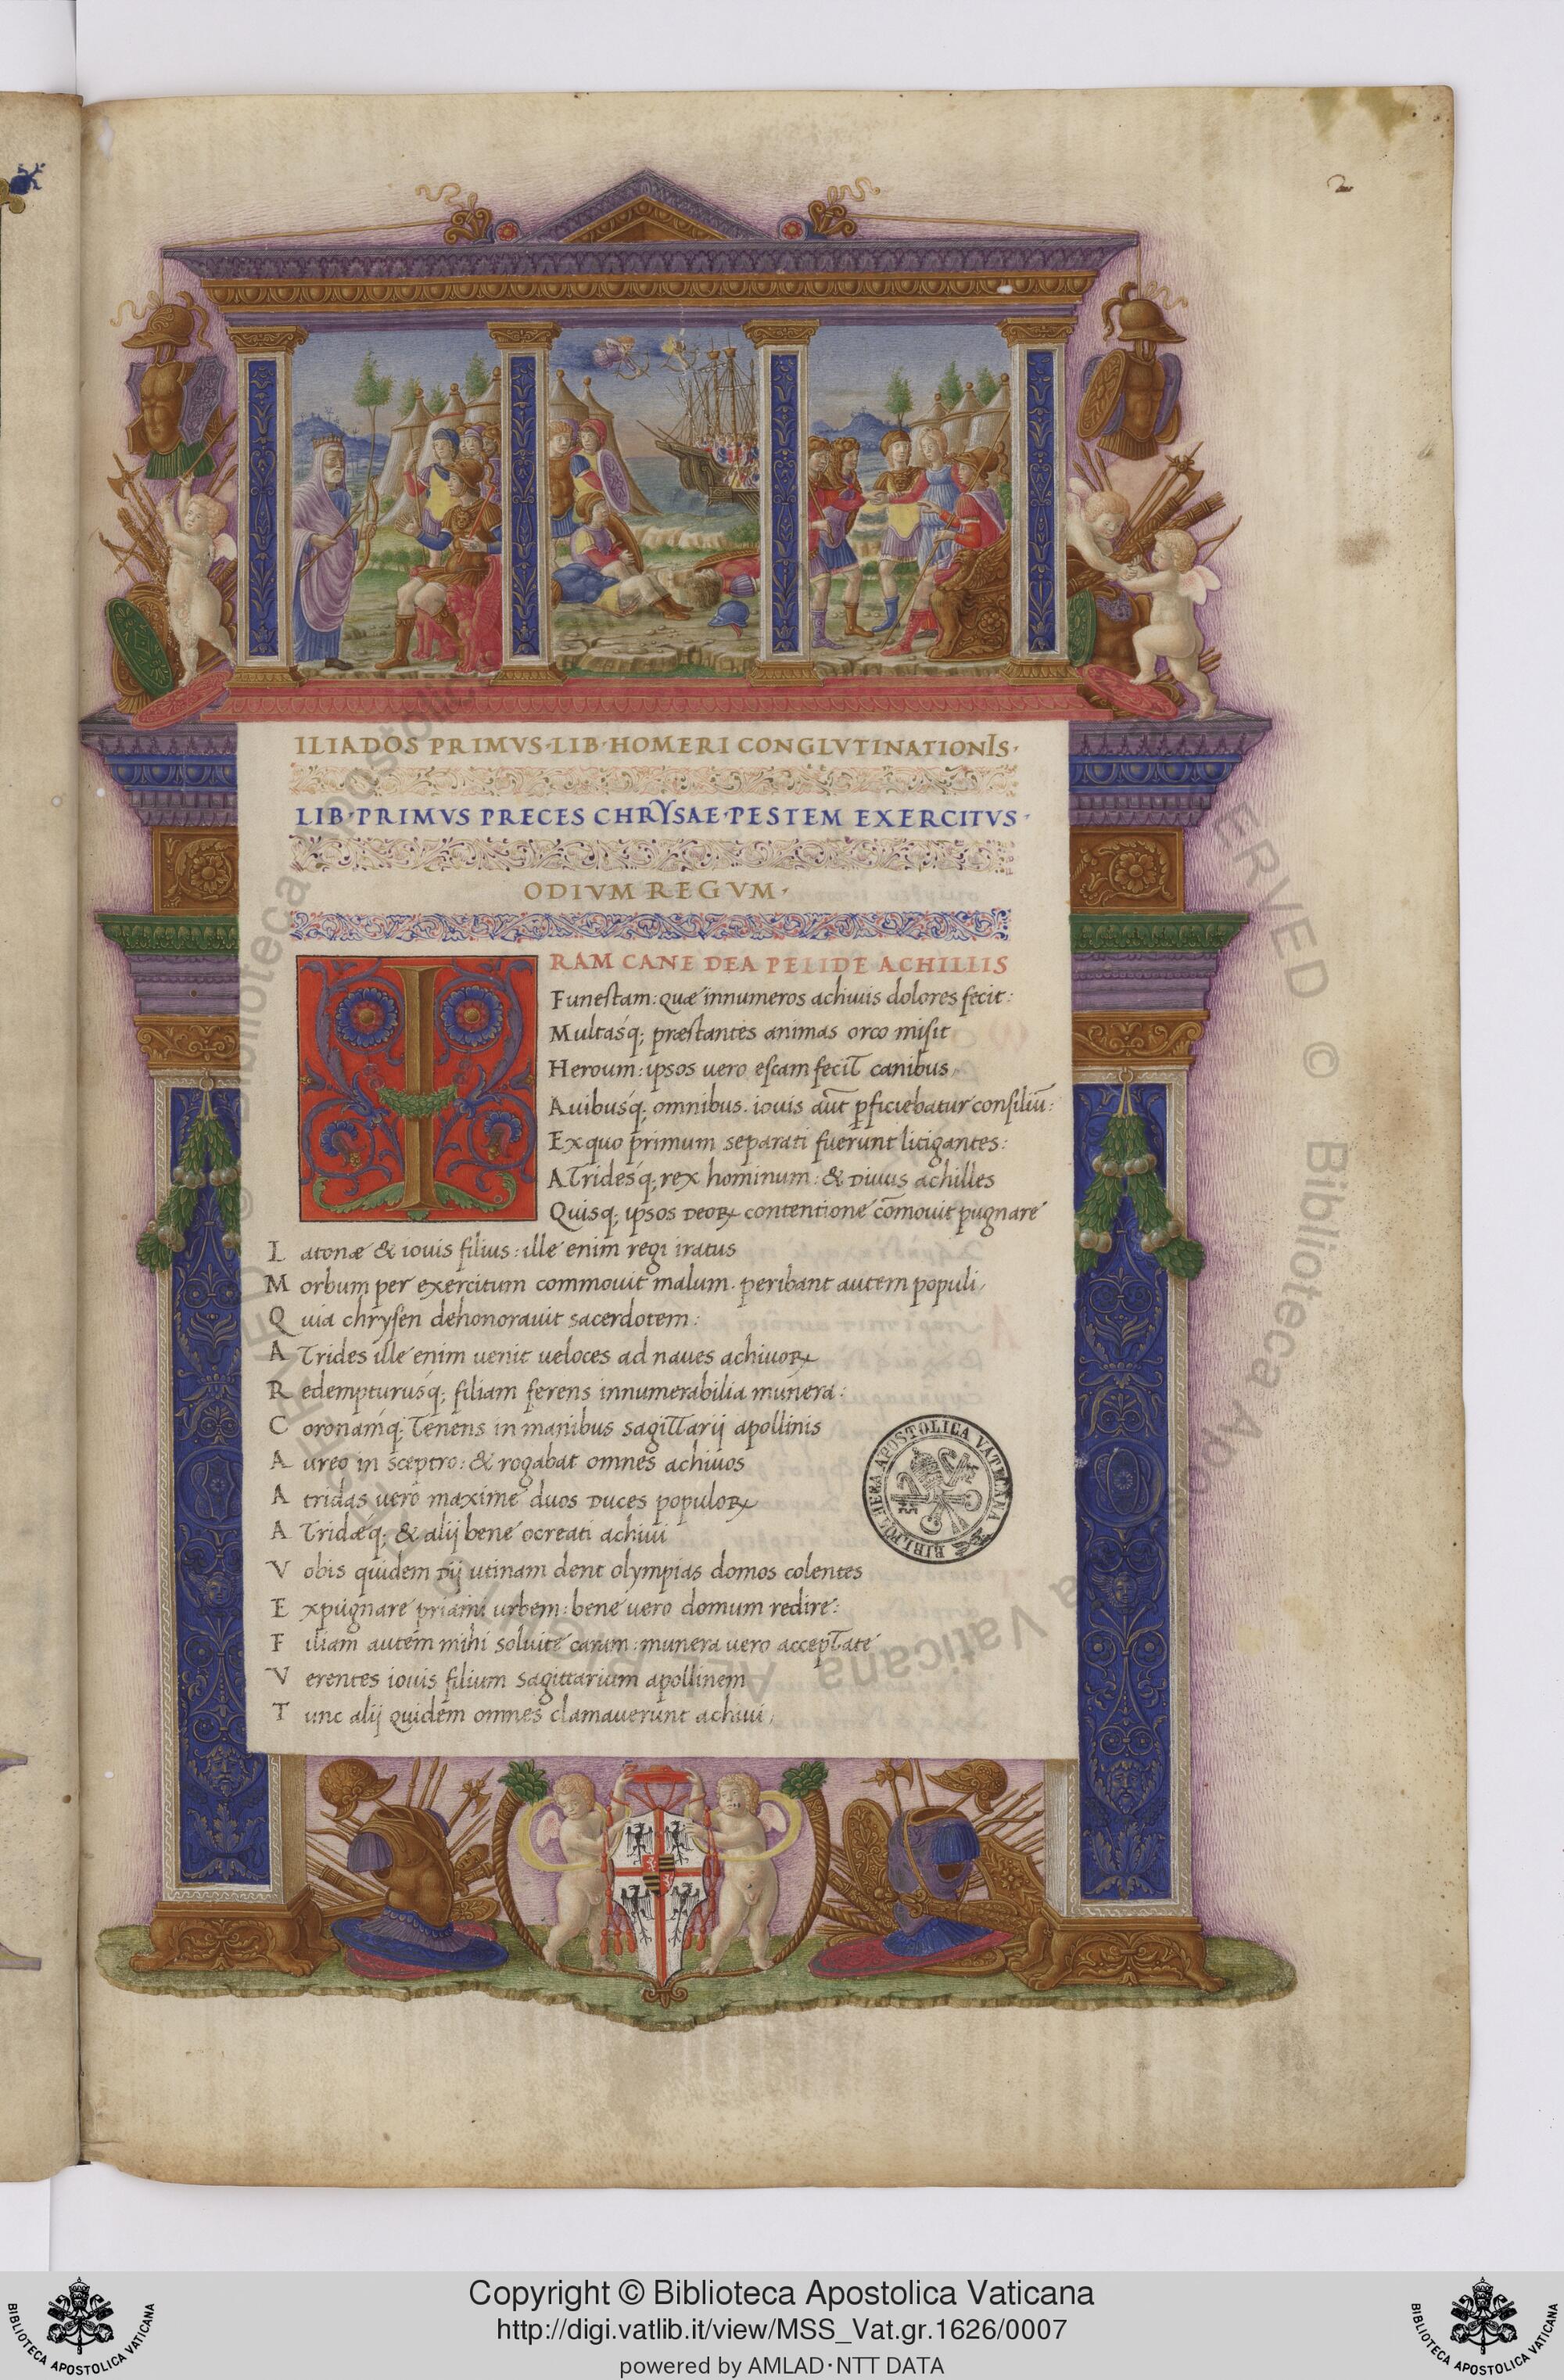 2
ILIADOS PRIMVS·LIB·HOMERI CONGLVTINATIONIS·
LIB·PRIMVS PRECES CHRYSAE·PESTEM EXERCITVS·
ODIVM REGVM·
IRAM CANE DEA PELIDE ACHILLIS
Funestam: quæ innumeros achiuis dolores fecit:
Multasq; præstantes animas orco misit
Heroum: ipsos uero escam fecit canibus,
Auibusq; omnibus. iouis aūt pficiebatur consiliū:
Ex quo primum separati fuerunt litigantes:
ATridesq; rex hominum: & Diuus achilles
Quisq; ipsos deoꝝ contentione cōmouit pugnare
Latonæ & iouis filius: ille enim regi iratus
Morbum per exercitum commouit malum. peribant autem populi,
Quia chrysen dehonorauit sacerdotem:
ATrides ille enim uenit ueloces ad naues achiuoꝝ
Redempturusq; filiam ferens innumerabilia munera:
Coronamq; Tenens in manibus sagittarij apollinis
Aureo in sceptro: & rogabat omnes achiuos
Atridas uero maxime duos Duces populoꝝ
ATridæq; & alij bene ocreati achiui
Vobis quidem Dij utinam dent olympias domos colentes
Expugnare priami urbem: bene uero domum redire:
Filiam autem mihi soluite caram: munera uero acceptate
Verentes iouis filium sagittarium apollinem
Tunc alij quidem omnes clamauerunt achiui,
BIBLIOTHECA APOSTOLICA VATICANA
Copyright © Biblioteca Apostolica Vaticana
http://digi.vatlib.it/view/MSS_Vat.gr.1626/0007
powered by AMLAD·NTT DATA
BIBLIOTECA APOSTOLICA VATICANA
BIBLIOTECA APOSTOLICA VATICANA